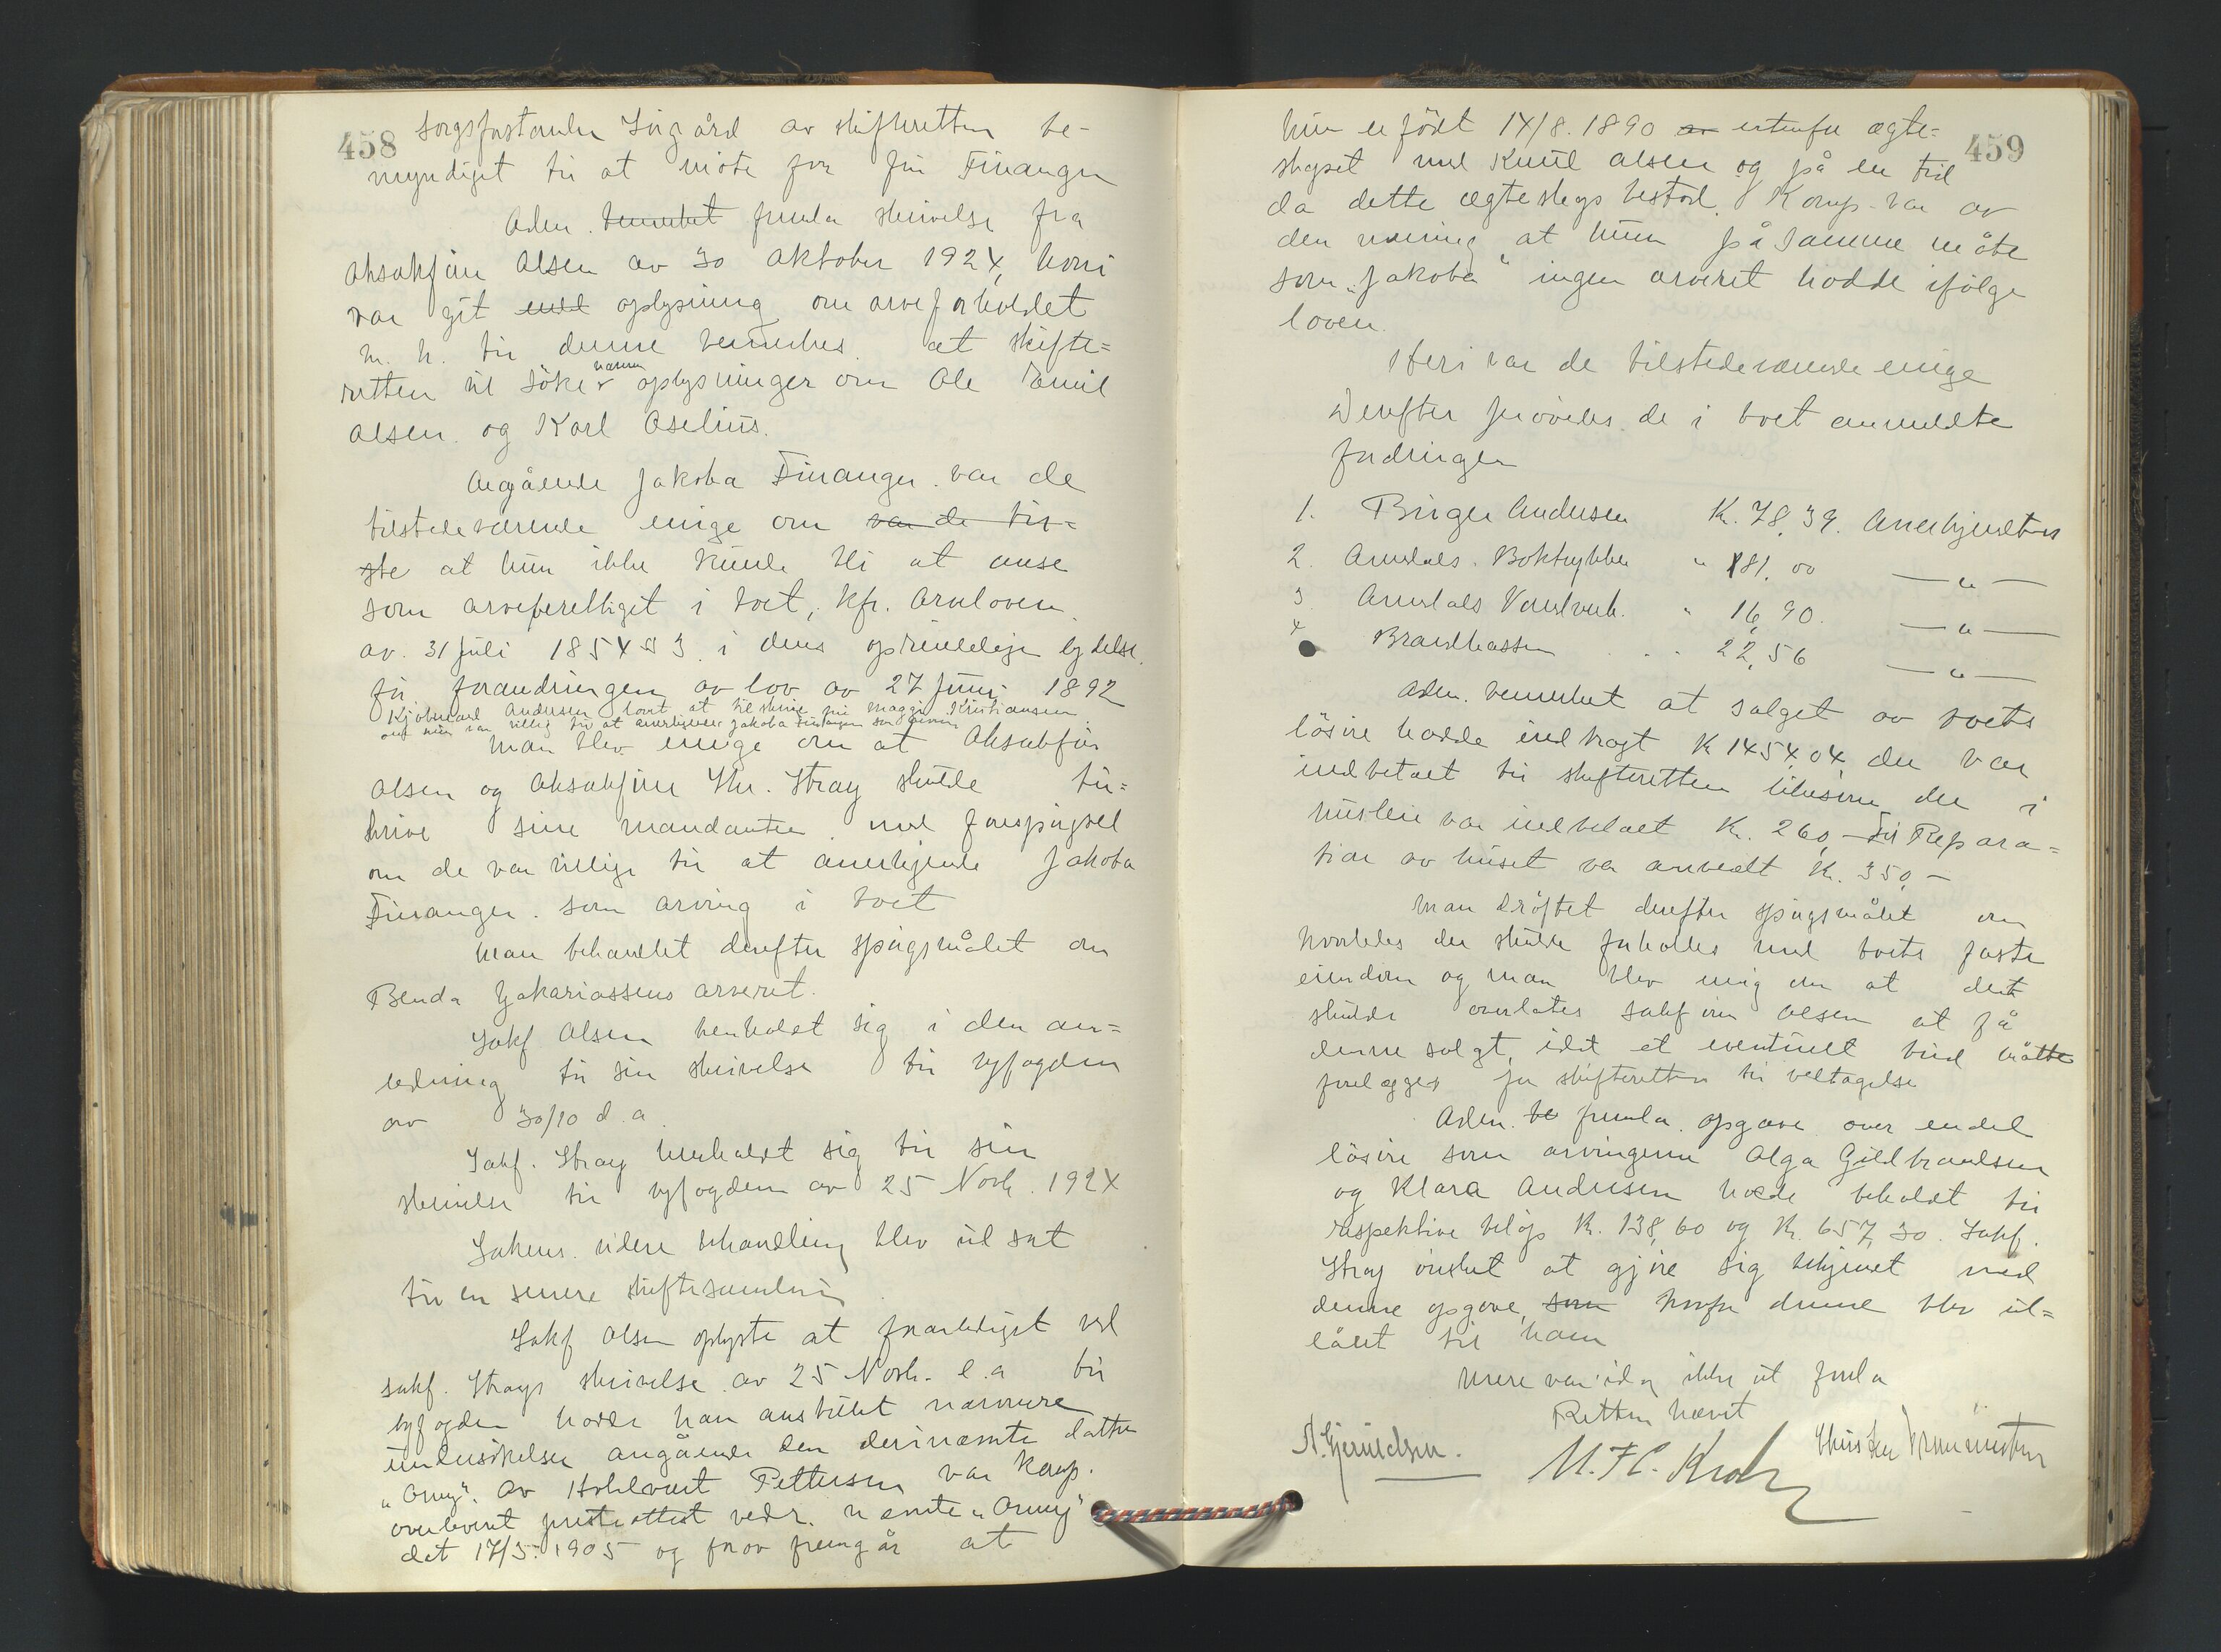 458
sorgsforstander Sörgård av skifteretten be-
myndiget til at möte for fru Finanger
Adm. bemerket fremla skrivelse fra
oksakförer Olsen av 30 oktober 1924, hvori
var git end oplysning om arveforholdet
m. h. til denne bemerkes at skifte=
retten vil söke nærmere oplysninger om Ole Emil
Olsen og Karl Oselius.
Angående Jakoba Finanger var de
tilstedeværende enige om var de til=
ste at hun ikke kunde bli at anse
som arveberettiget i boet, kfr. Arveloven
av 31 juli 1854 § 3 i dens oprindelige lydelse
för forandringen av lov av 27 juni 1892
Kjöbmand Andersen lovet at tilskrive fru Maggie Kristiansen
om hun var villig til at anerkjende Jakoba Finanger som arving
Man blev enige om at Oksakförer
Olsen og oksakförer Chr. Stray skulde til=
skrive sine mandanter med forespörgsel
om de var villige til at anerkjende Jakoba
Finanger som arving i boet
Man behandlet derefter spörgsmålet om
Benda Zakariassens arveret.
Sakf Olsen henholdt sig i den an=
ledning til sin skrivelse til byfogden
av 30/10 d. a.
Sakf. Stray henholdt sig til sin
skrivelse til byfogden av 25 Novb. 1924
Sakens videre behandling blev utsat
til en senere skiftesamling
Sakf Olsen oplyste at foranlediget ved
sakf. Strays skrivelse av 25 Novb. d.a til
byfogden hadde han anstillet nærmere
undersökelser angående den deri nævnte datter
"Anny". Av Hohlvart Pettersen var komp.
overleveret presteattest vedr. nævnte "Anny"
dat 17/5. 1905 og hvorav fremgår at
459
hun er födt 14/8. 1890 av utenfor ægte=
skapet med Knut Olsen og på en tid
da dette ægteskap bestod. Komp. var av
den mening at hun på samme måte
som "Jakoba" ingen arveret hadde ifölge
loven.
Heri var de tilstedeværende enige
Derefter prövedes de i boet anmeldte
fordringer
1. Birger Andersen Kr. 78,39. Anerkjendtes
2. Arendals Boktrykkeri " 181,00 —"—
3 Arendals Vandverk. " 16,90. —"—
4 Brandkassen 22,56 —"—
Adm. bemerket at salget av boets
lösöre hadde indbragt K 1454,04 der var
indbetalt til skifteretten likesom der i
husleie var indbetalt Kr. 260,— Til Repara=
tion av huset var anvendt Kr. 350,—
Man dröftet derefter spörgsmålet om
hvorledes der skulde forholdes med boets faste
eiendom og man blev enig om at det
skulde overlates sakförer Olsen at få
denne solgt, idet et eventuelt bud måtte
forelægges for skifteretten til vedtagelse
Adm. be fremla opgave over endel
lösöre som arvingerne Olga Guldbrandsen
og Klara Andersen hadde beholdt til
respektive belöp K. 138,60 og Kr. 657,30. Sakf.
Stray önsket at gjöre sig bekjent med
denne opgave, som hvorfor denne blev ut=
lånt til ham
Mere var idag ikke at foreta
Retten hævet
M. Fl. Krohn